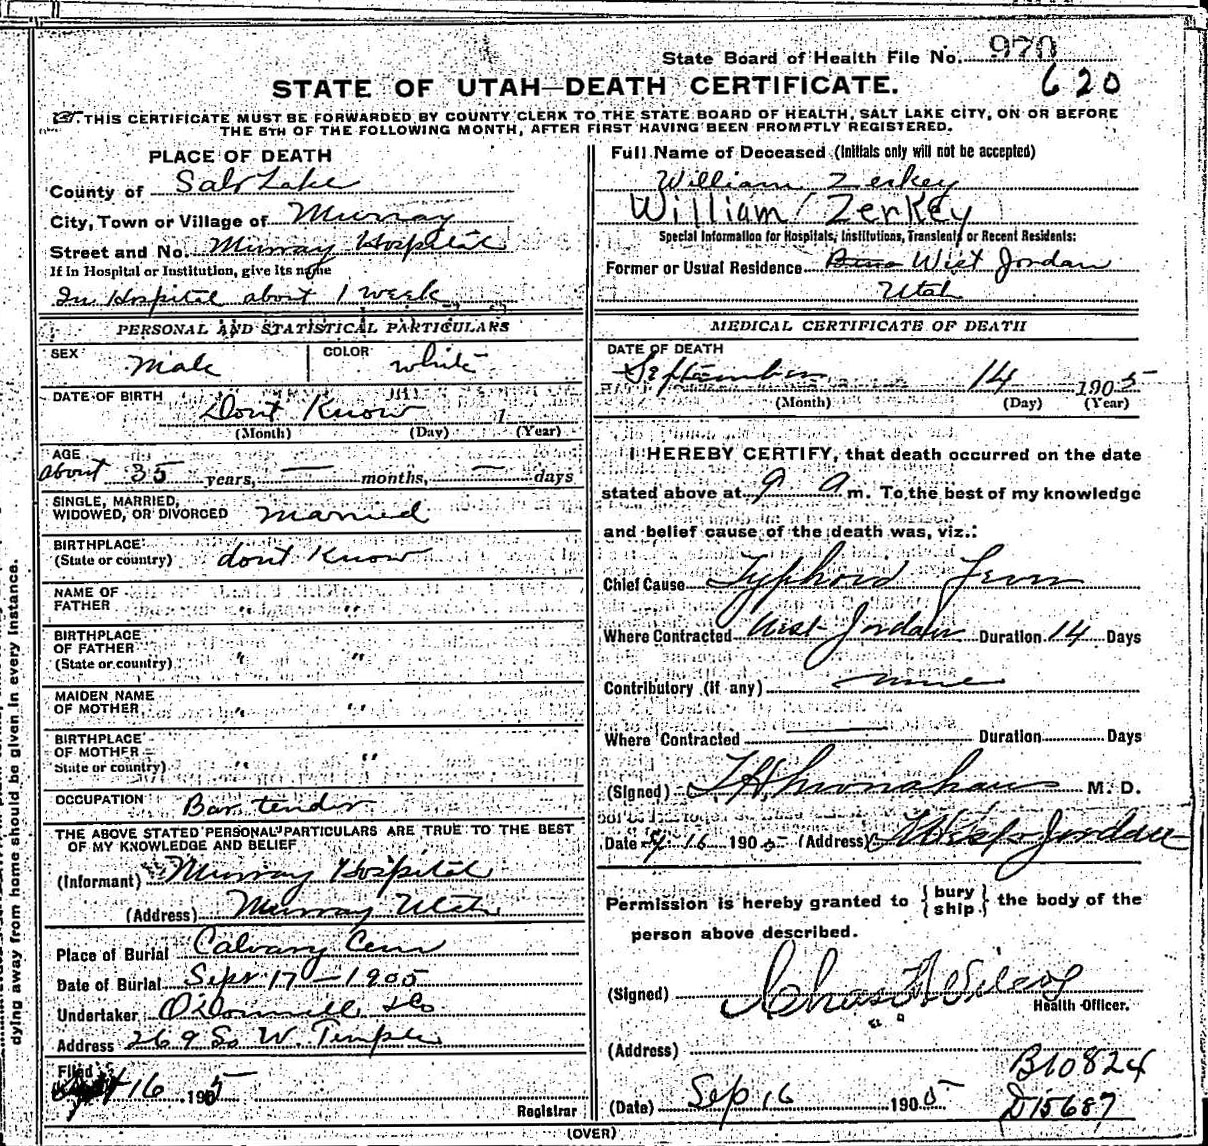 State Board of Health File No. 970
620
STATE OF UTAH—DEATH CERTIFICATE.
THIS CERTIFICATE MUST BE FORWARDED BY COUNTY CLERK TO THE STATE BOARD OF HEALTH, SALT LAKE CITY, ON OR BEFORE
THE 5TH OF THE FOLLOWING MONTH, AFTER FIRST HAVING BEEN PROMPTLY REGISTERED.
PLACE OF DEATH
County of Salt Lake
City, Town or Village of Murray
Street and No. Murray Hospital
If in Hospital or Institution, give its name
In Hospital about 1 week
PERSONAL AND STATISTICAL PARTICULARS
SEX Male COLOR white
DATE OF BIRTH Dont Know 1
(Month) (Day) (Year)
AGE
about 35 years, — months, — days
SINGLE, MARRIED,
WIDOWED, OR DIVORCED Married
BIRTHPLACE
(State or country) dont Know
NAME OF
FATHER " "
BIRTHPLACE
OF FATHER
(State or country) " "
MAIDEN NAME
OF MOTHER " "
BIRTHPLACE
OF MOTHER
State or country) " "
OCCUPATION Bar tender
THE ABOVE STATED PERSONAL PARTICULARS ARE TRUE TO THE BEST
OF MY KNOWLEDGE AND BELIEF
(Informant) Murray Hospital
(Address) Murray Utah
Place of Burial Calvary Cem
Date of Burial Sept 17 — 1905
Undertaker O'Donnell & Co
Address 269 So W. Temple
Filed
Sept 16 1905
Registrar
Full Name of Deceased (Initials only will not be accepted)
William Zerkey
William Zerkey
Special Information for Hospitals, Institutions, Transients or Recent Residents:
Former or Usual Residence West Jordan
Utah
MEDICAL CERTIFICATE OF DEATH
DATE OF DEATH
September 14 1905
(Month) (Day) (Year)
I HEREBY CERTIFY, that death occurred on the date
stated above at 9 a m. To the best of my knowledge
and belief cause of the death was, viz.:
Chief Cause Typhoid Fever
Where Contracted West Jordan Duration 14 Days
Contributory (if any) none
Where Contracted — Duration Days
(Signed) M. D.
Date 9/16 1905 (Address) West Jordan
Permission is hereby granted to {bury
ship.} the body of the
person above described.
(Signed) Chas
Health Officer.
(Address)
B10824
(Date) Sep 16 1905
D15687
(OVER)
dying away from home should be given in every instance.